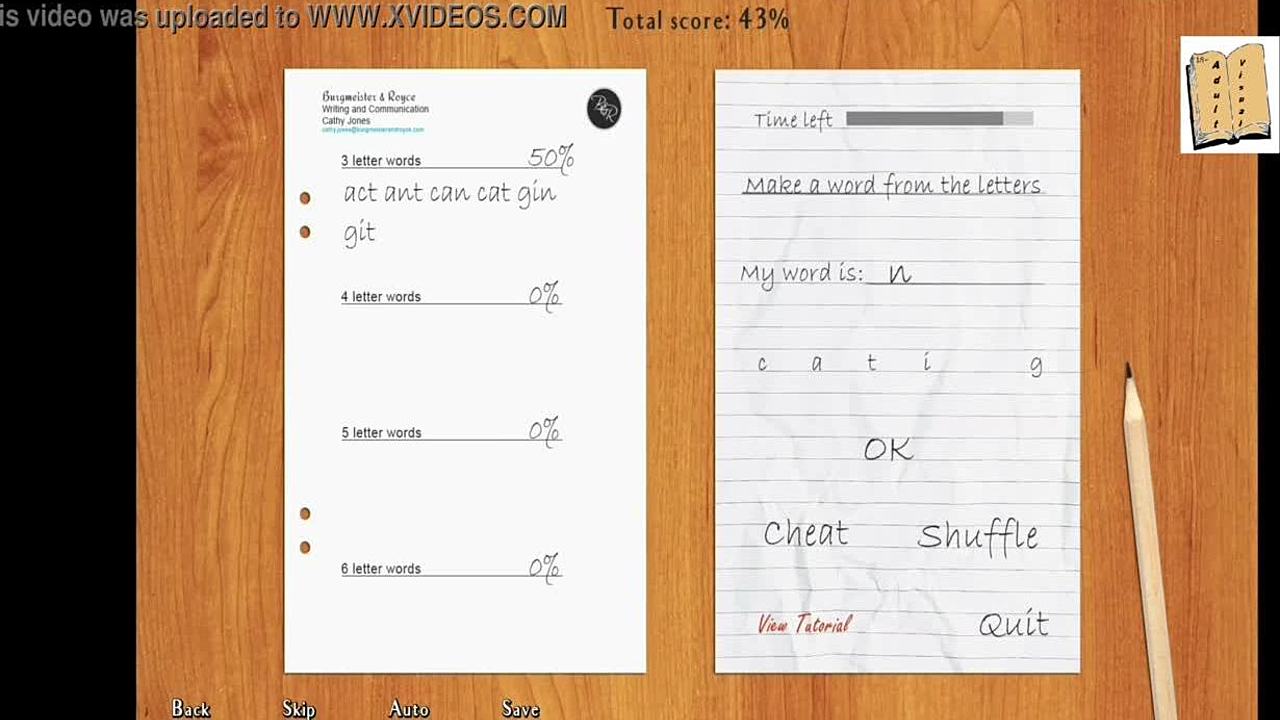 is video was uploaded to WWW.XVIDEOS.COM
Total score: 43%
Burgmeister & Royce
Writing and Communication
Cathy Jones
cathy.jones@burgmeisterandroyce.com
B&R
3 letter words 50%
act ant can cat gin
git
4 letter words 0%
5 letter words 0%
6 letter words 0%
Time left
Make a word from the letters
My word is: n
c a t i g
OK
Cheat Shuffle
View Tutorial Quit
18+
Adult
Visual
Back Skip Auto Save